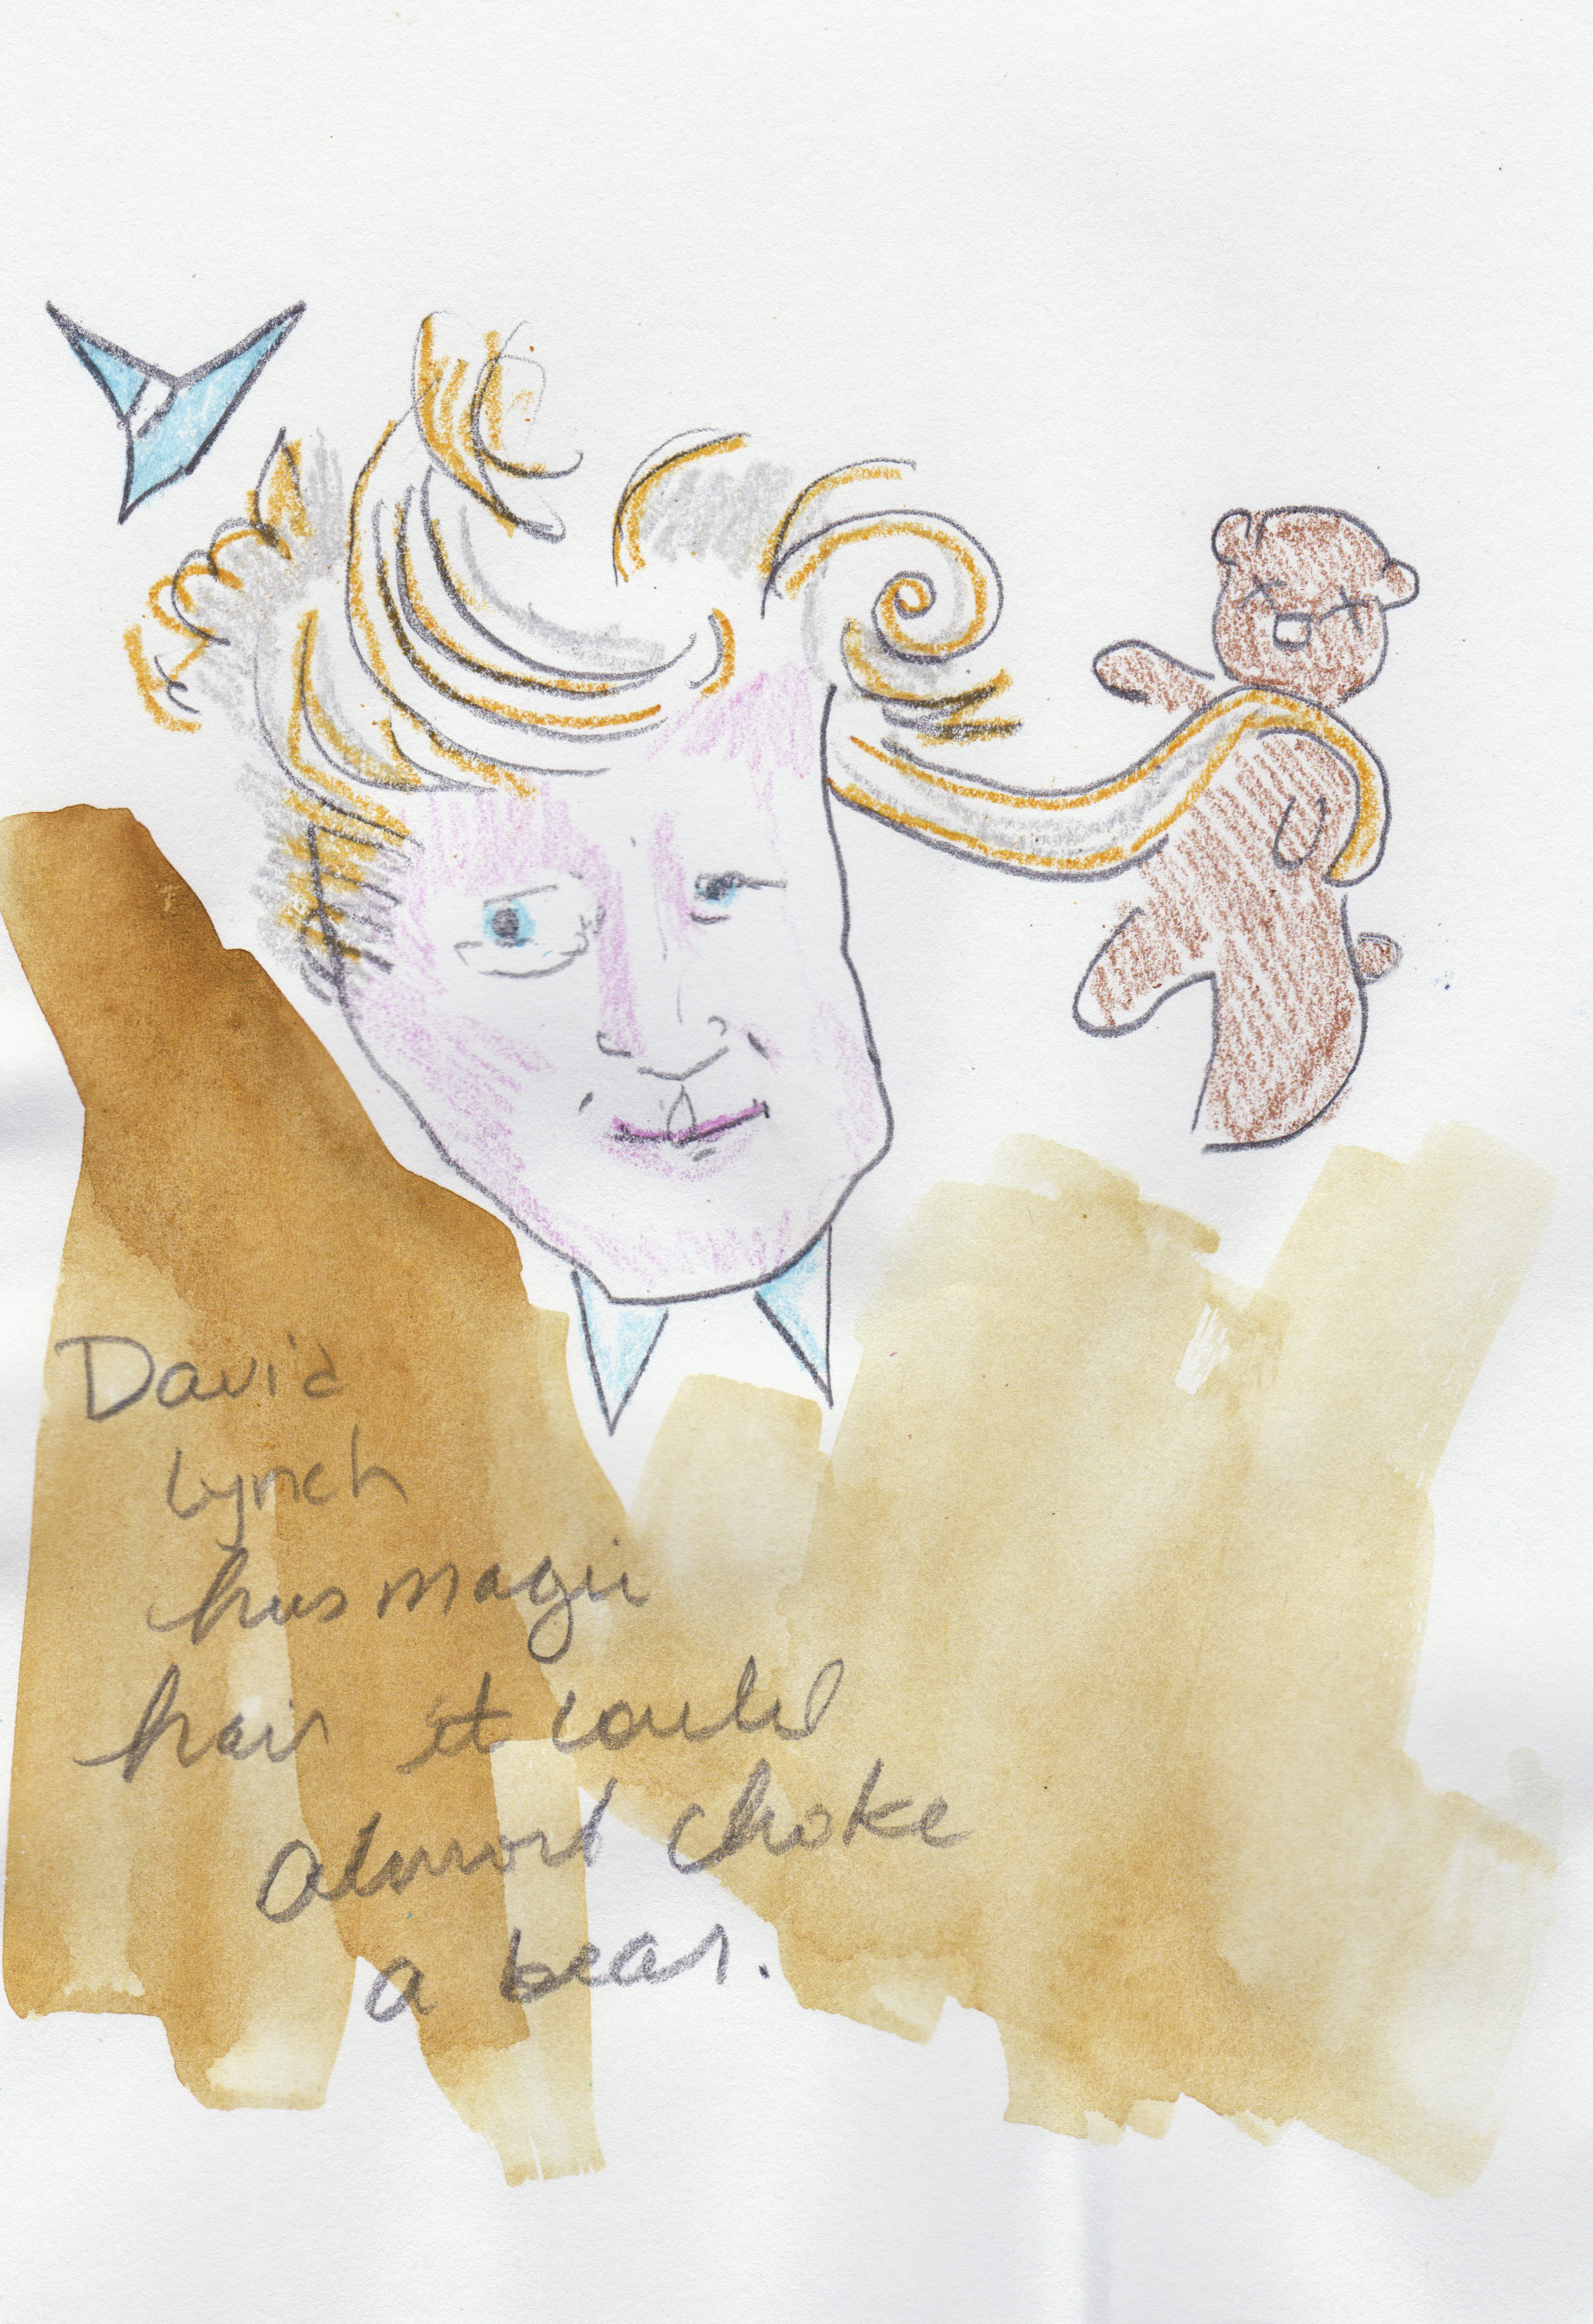 David
Lynch
has magic
hair it could
almost choke
a bear.